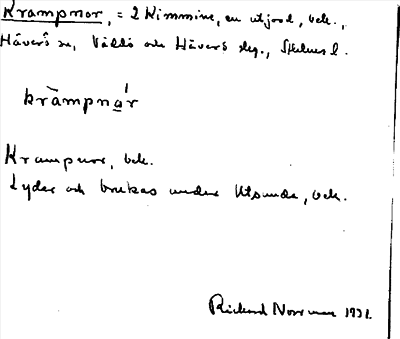 Krampnor, = 2 Kimmine, en utjord, bek.,
Häverö sn, Väddö och Häverö skg., Sthlms l.
kràmpna̲ŕ
Krampnor, bek.
Lyder och brukas under Utsunda, bek.
Rickard Norrman 1931.